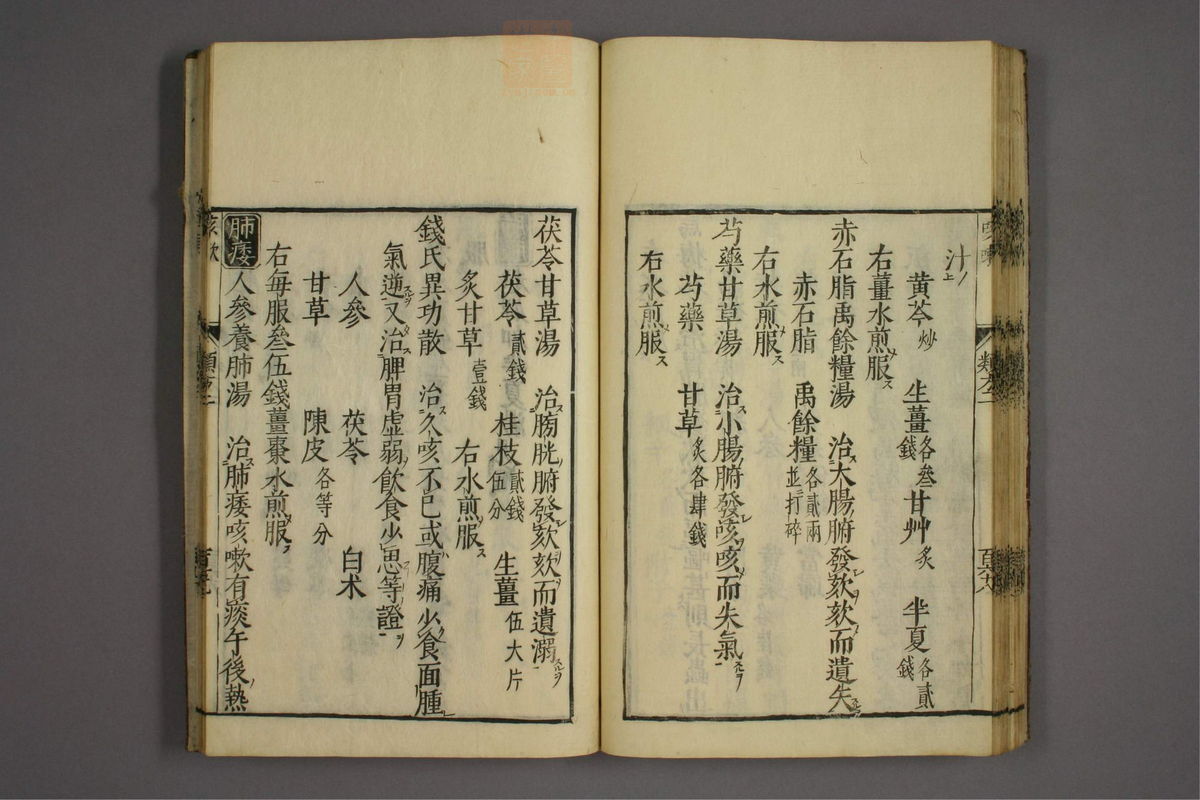 汁
黄芩炒 生薑各叁錢 甘艸炙 半夏各貳錢
右薑水煎服ス
赤石脂禹餘糧湯 治大腸腑發欬欬而遺失
赤石脂 禹餘糧各貳兩並打碎
右水煎服ス
芍藥甘草湯 治小腸腑發咳咳而失氣
芍藥 甘草炙各肆錢
右水煎服ス
茯苓甘草湯 治膀胱腑發欬欬而遺溺
茯苓貳錢 桂枝貳錢伍分 生薑伍大片
炙甘草壹錢 右水煎服ス
錢氏異功散 治久咳不已或腹痛少食面腫
氣逆又治脾胃虛弱飲食少思等證
人參 茯苓 白朮
甘草 陳皮各等分
右每服叁伍錢薑棗水煎服ス
肺痿 人參養肺湯 治肺痿咳嗽有痰午後熱
咳欬 類之二
類之二 百六八